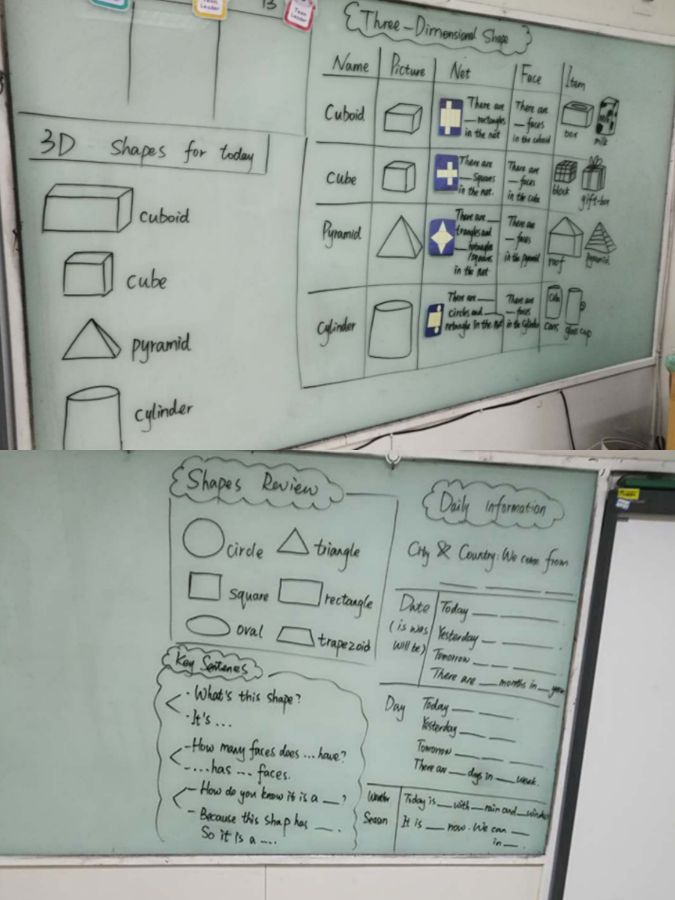 13
Team Leader
Team Leader
3D Shapes for today
cuboid
cube
pyramid
cylinder
Three-Dimensional Shape
Name Picture Net Face Item
Cuboid
There are
___ rectangles
in the net
There are
___ faces
in the cuboid
box
milk
Cube
There are
___ squares
in the net.
There are
___ faces
in the cube
block
gift-box
Pyramid
There are ___
triangles and
___ rectangles
/squares
in the net
There are
___ faces
in the pyramid
roof
pyramid
Cylinder
There are ___
circles and ___
rectangle in the net
There are
___ faces
in the cylinder
cans
glass cup
Shapes Review
circle
triangle
square
rectangle
oval
trapezoid
Key Sentences
- What's this shape?
- It's ...
- How many faces does ... have?
- ... has ... faces.
- How do you know it is a ___?
- Because this shap has ___.
So it is a ....
Daily Information
City & Country: We come from
___ ___ ___
Date
(is was
will be)
Today ___ ___.
Yesterday ___ ___.
Tomorrow ___ ___.
There are ___ months in ___ year
Day
Today ___ ___.
Yesterday ___ ___
Tomorrow ___ ___.
There are ___ days in ___ week.
Weather
Season
Today is ___ with ___ rain and ___ winds
It is ___ now. We can ___
in ___.